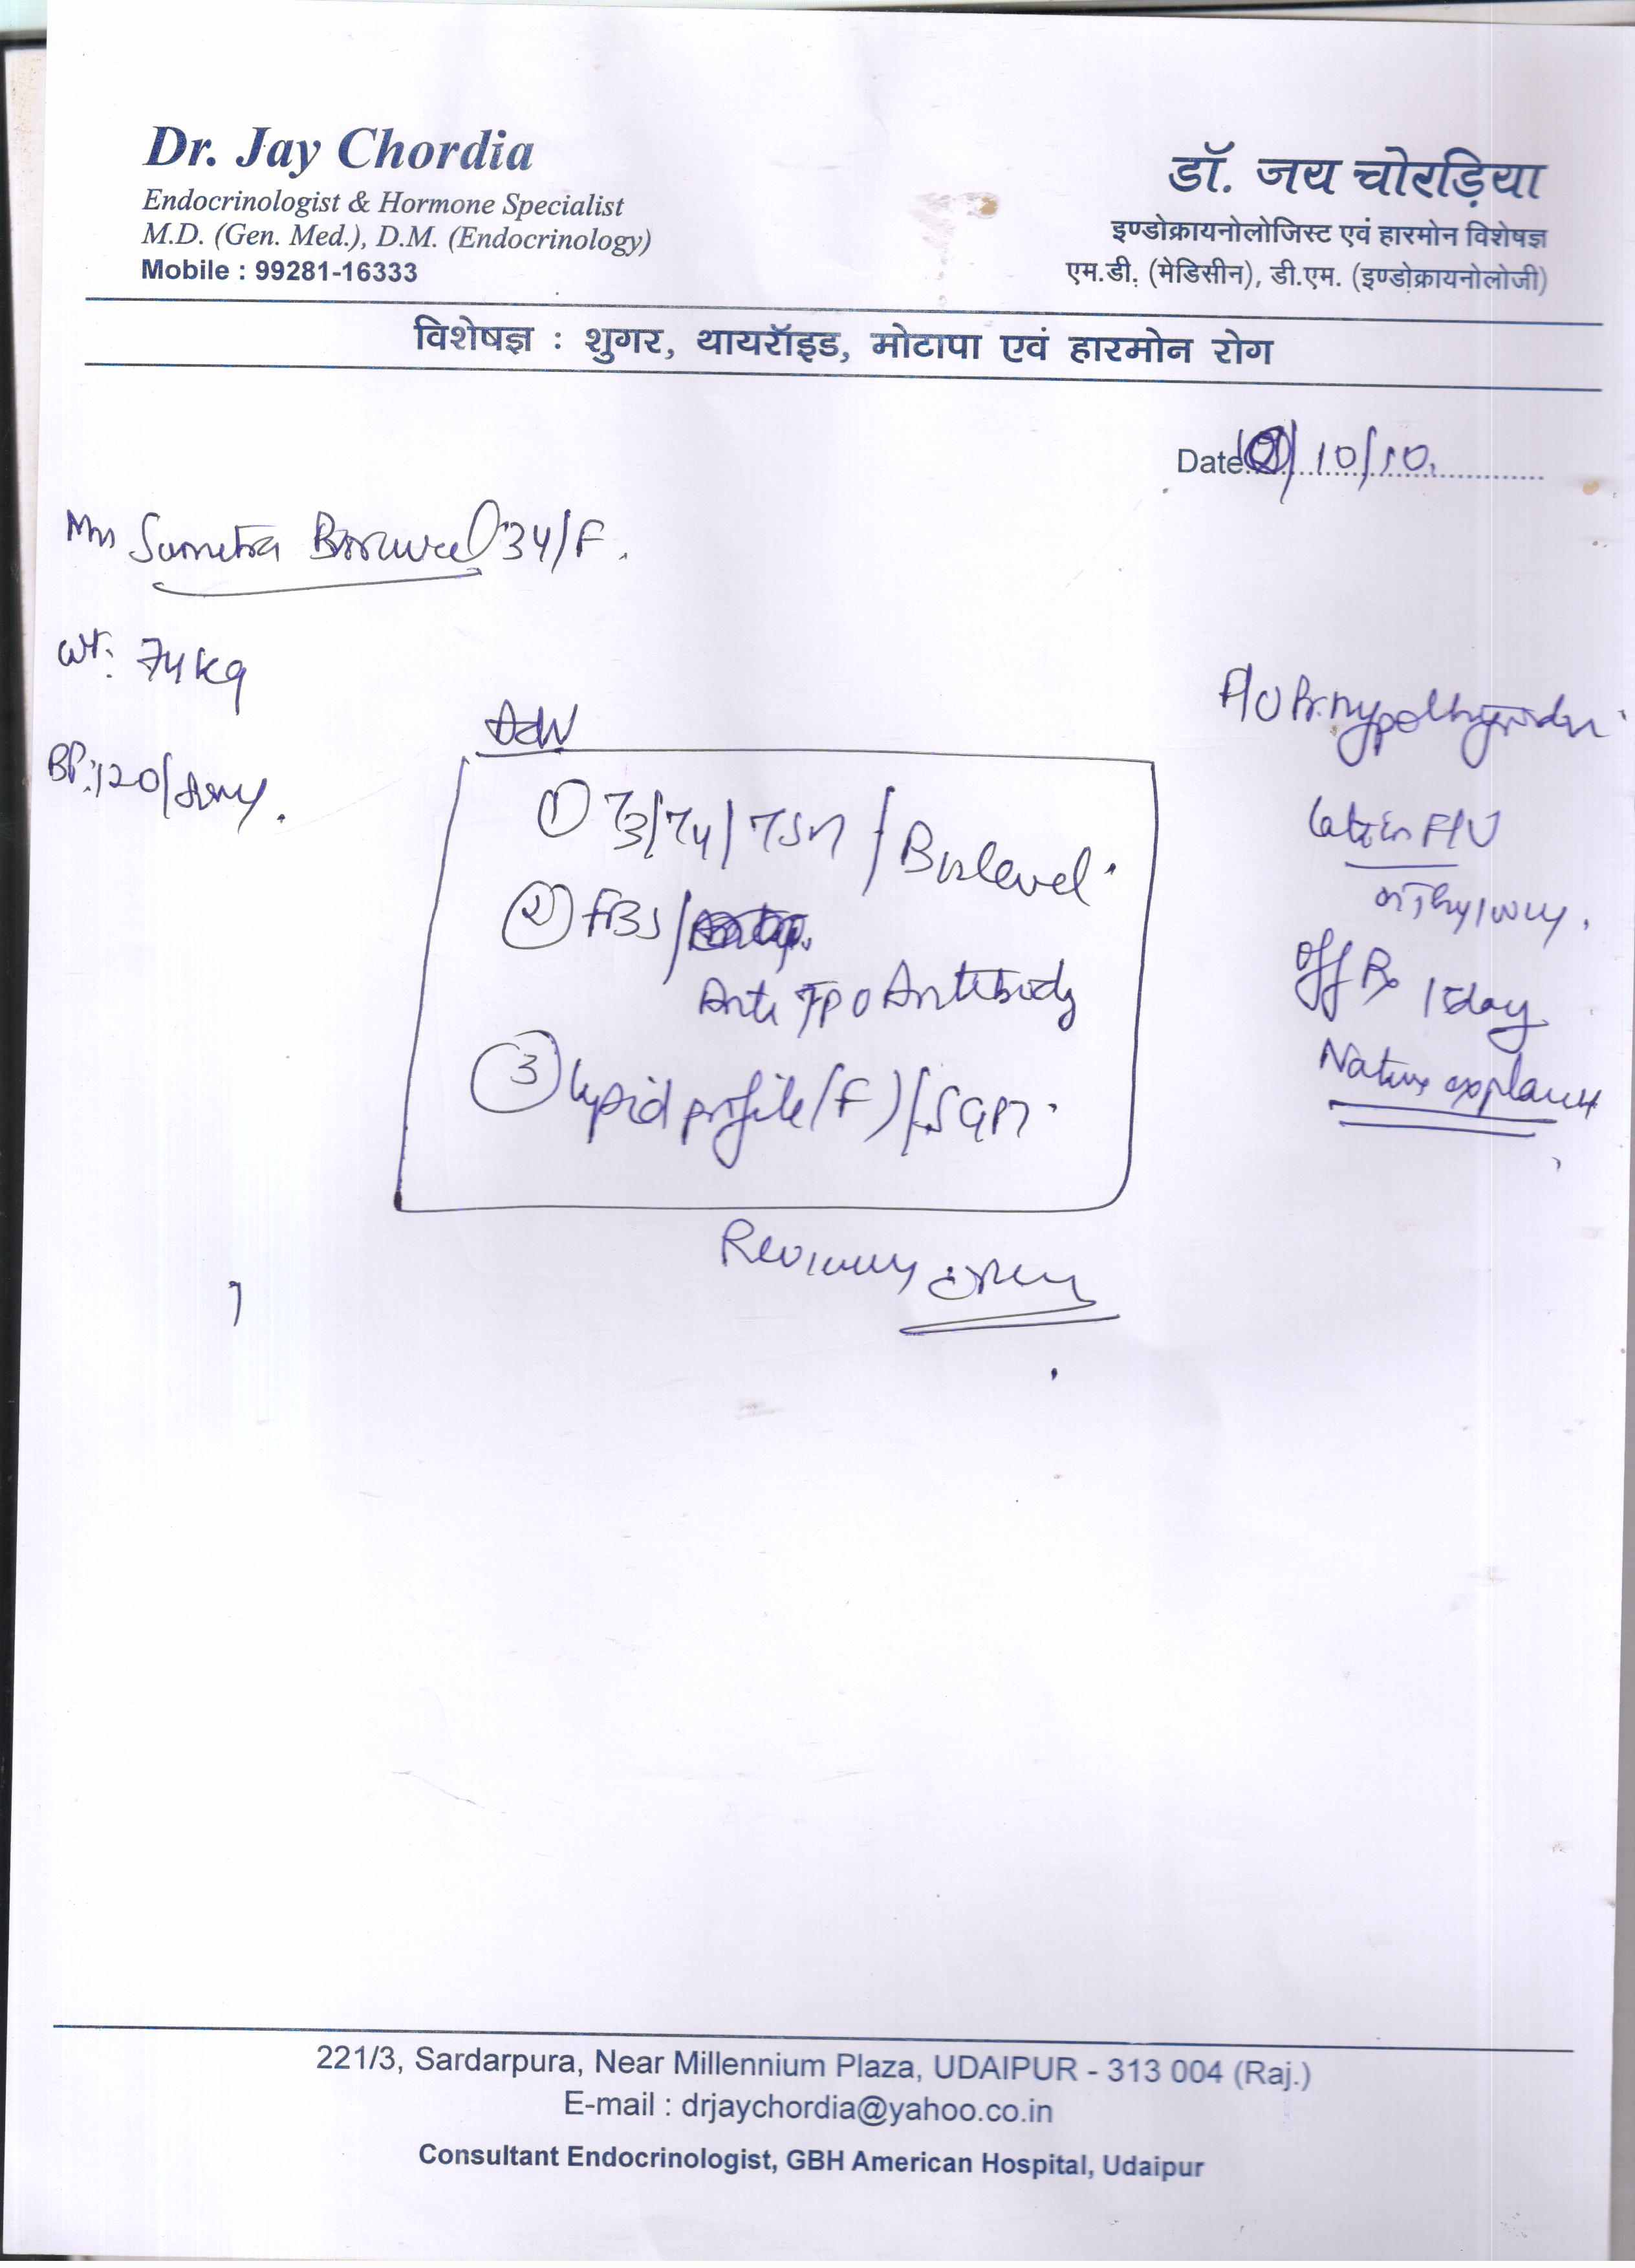 Dr. Jay Chordia
Endocrinologist & Hormone Specialist
M.D. (Gen. Med.), D.M. (Endocrinology)
Mobile : 99281-16333
डॉ. जय चोरड़िया
इण्डोक्रायनोलोजिस्ट एवं हारमोन विशेषज्ञ
एम.डी. (मेडिसीन), डी.एम. (इण्डोक्रायनोलोजी)
विशेषज्ञ : शुगर, थायरॉइड, मोटापा एवं हारमोन रोग
Date 10/10.
34/F.
Wt: 74 kg
BP: 120/
Adv
① T3/T4/TSH / B12 level.
② FBS/
Anti TPO Antibody
③ Lipid profile (F) / SGPT.
F/U Pr. hypothyroidism
F/U
off Rx 15day
Nature explained
221/3, Sardarpura, Near Millennium Plaza, UDAIPUR - 313 004 (Raj.)
E-mail : drjaychordia@yahoo.co.in
Consultant Endocrinologist, GBH American Hospital, Udaipur